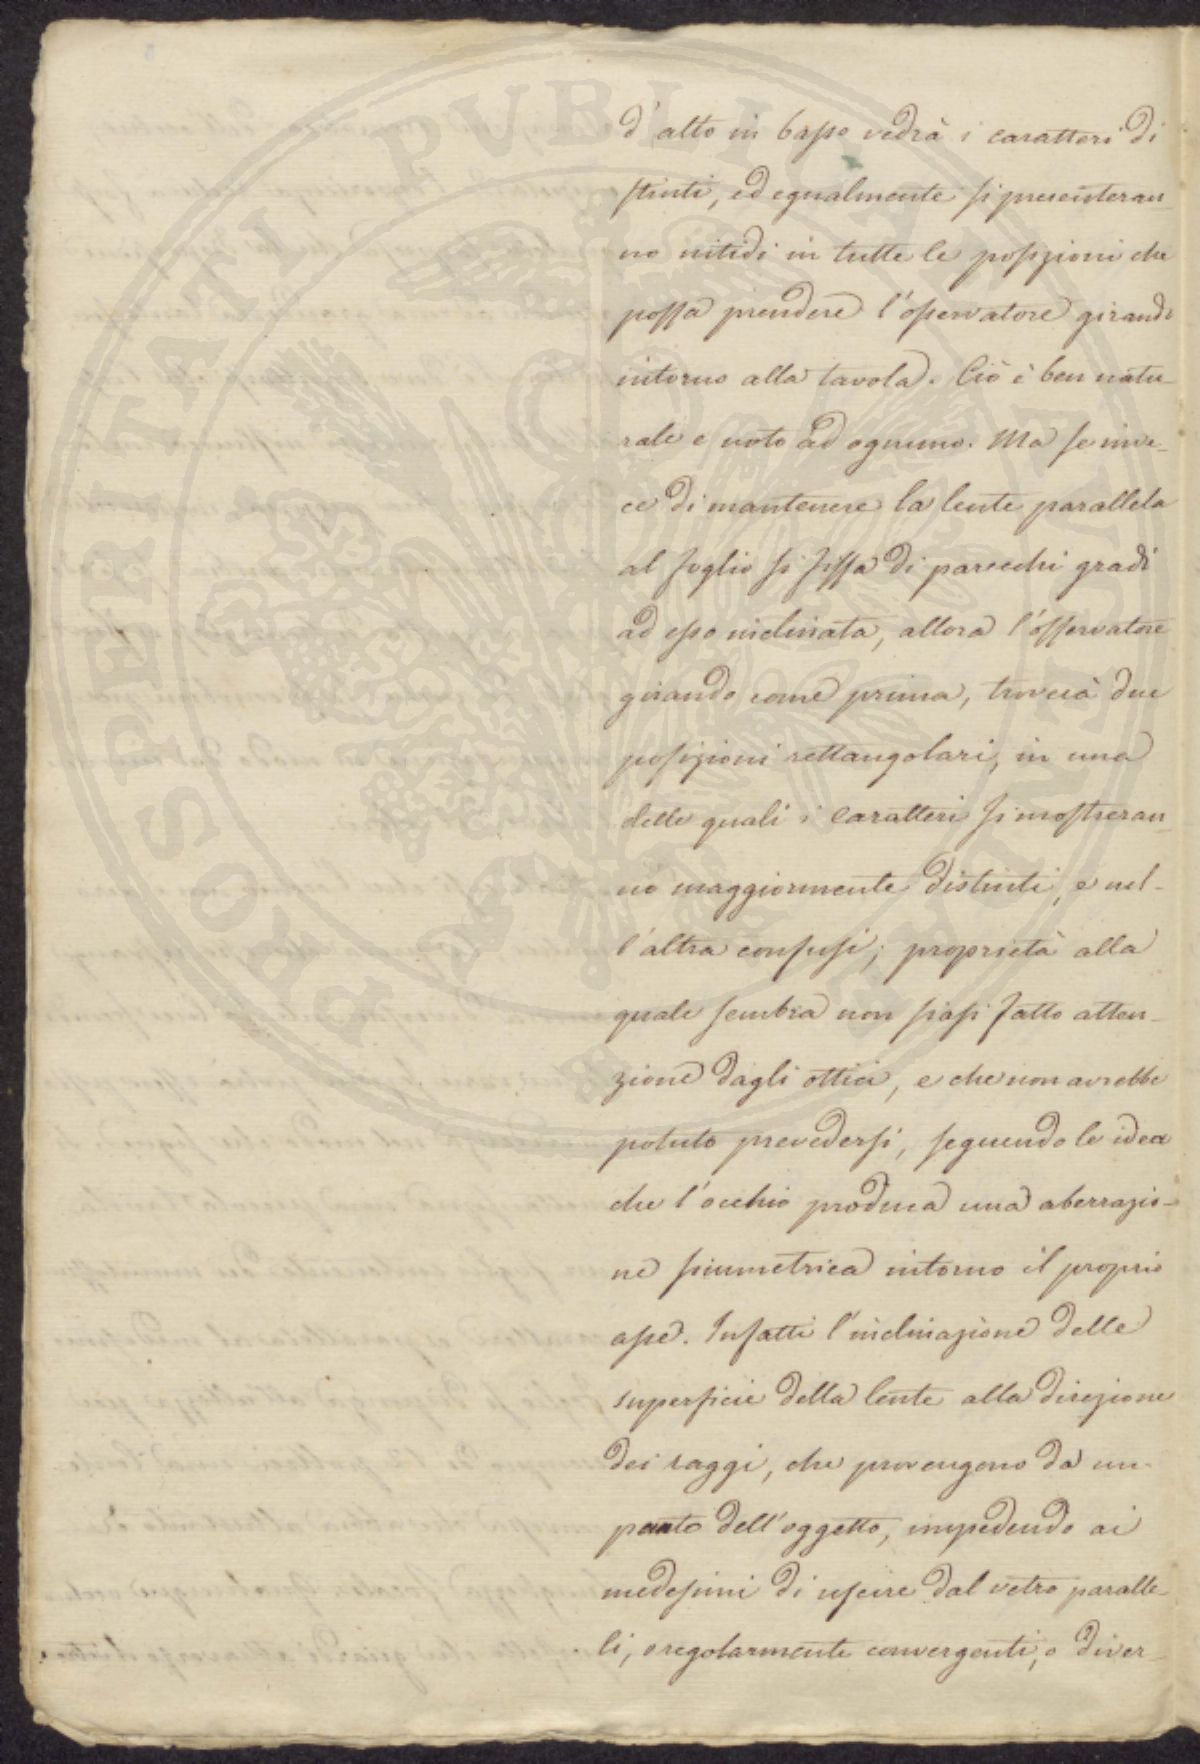 d'alto in basso vedrà i caratteri di
stinti, ed egualmente si presenteran_
no nitidi in tutte le posizioni che
possa prendere l'osservatore girando
intorno alla tavola. Ciò è ben natu_
rale e noto ad ognuno. Ma se inve_
ce di mantenere la lente parallela
al foglio si fissa di parecchi gradi
ad esso inclinata, allora l'osservatore
girando come prima, troverà due
posizioni rettangolari, in una
delle quali i caratteri si mostreran_
no maggiormente distinti, e nel_
l'altra confusi; proprietà alla
quale sembra non siasi fatto atten_
zione dagli ottici, e che non avrebbe
potuto prevedersi, seguendo le idee
che l'occhio produca una aberrazio_
ne simmetrica intorno il proprio
asse. Infatti l'inclinazione delle
superficie della lente alla direzione
dei raggi, che provengono da un
punto dell'oggetto, impedendo ai
medesimi di uscire dal vetro paralle_
li, o regolarmente convergenti, o diver_
PROSPERITATI PUBLICAE AUGENDAE